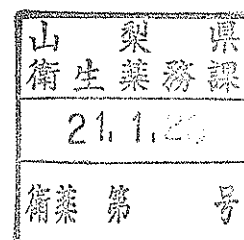 山梨県
衛生薬務課
21.1.
衛薬第 号